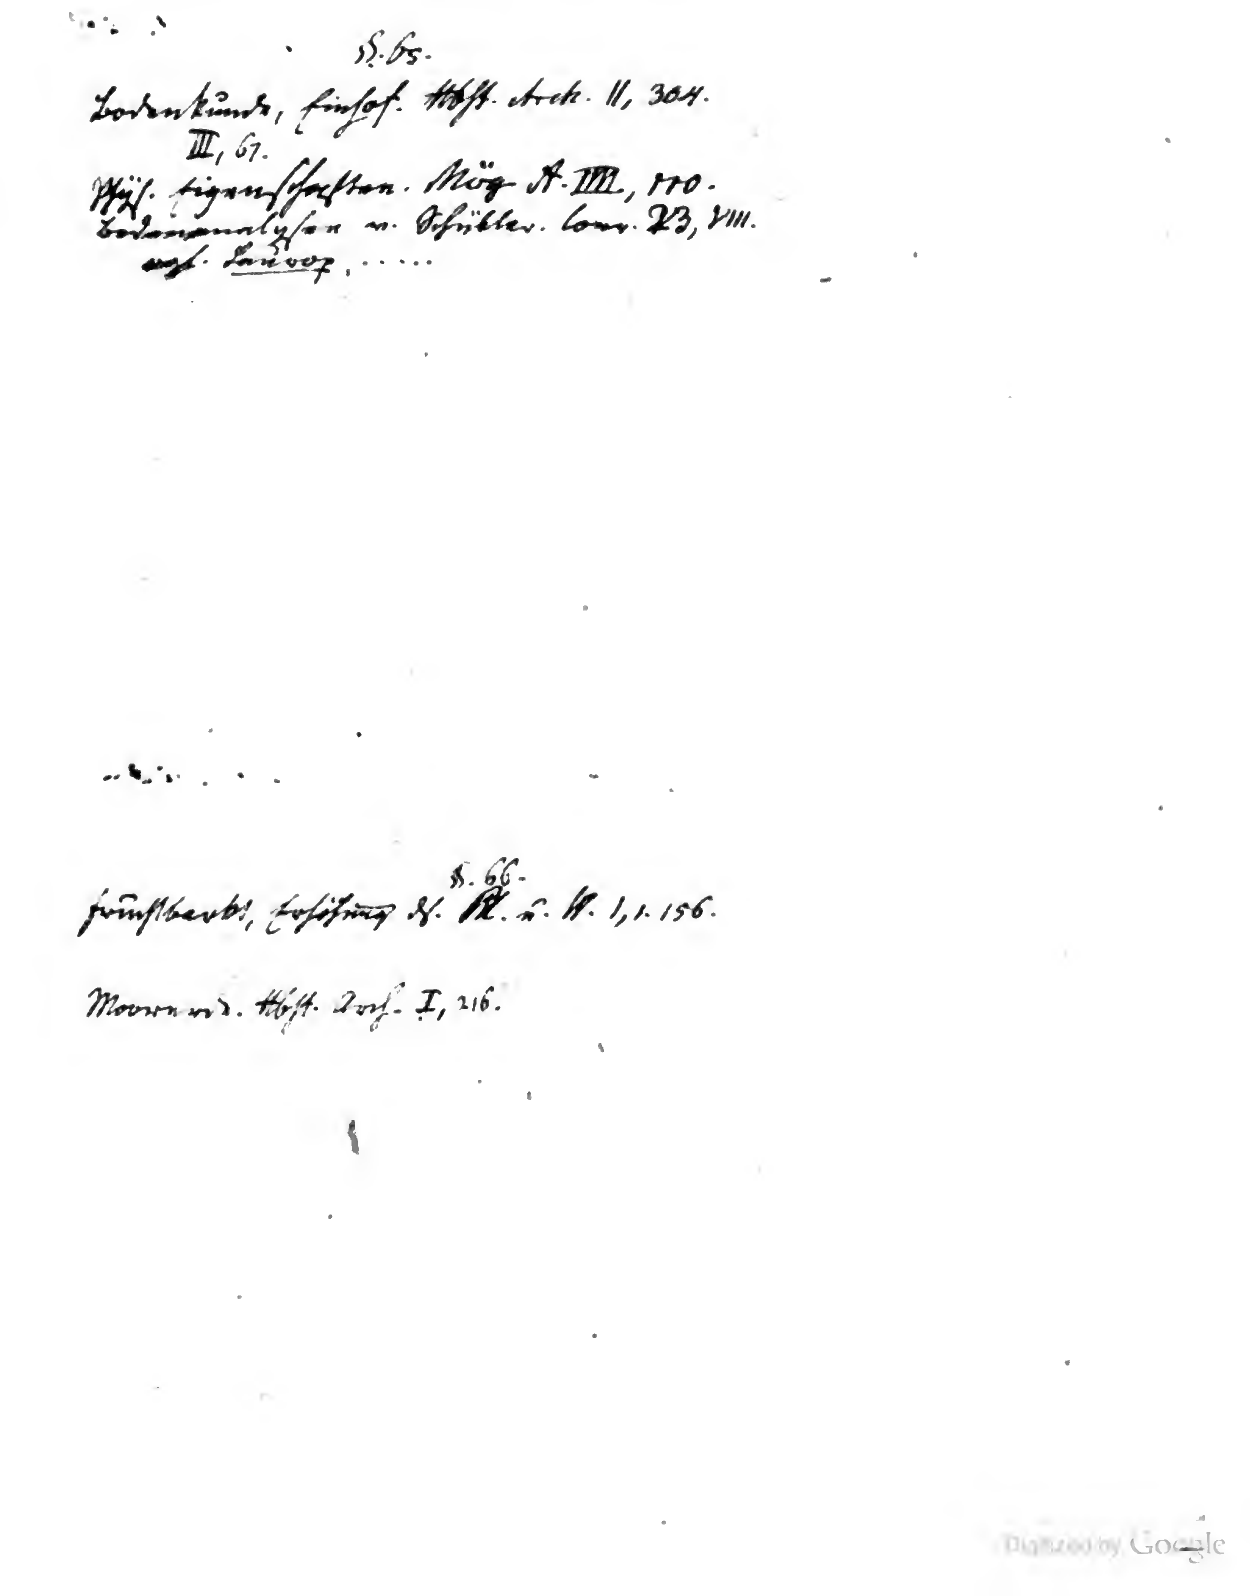 §. 65.
Bodenkunde, Einhof. Hbst. Arch. II, 304.
III, 67.
Phys. Eigenschaften. Mög A. IIII, 110.
Bodenanalysen v. Schübler. Corr. 23, VIII.
vgl. Laurop, . . . . .
§. 66.
Fruchtbark., Erhöhung ds. u. 1, 1. 156.
Moorerde. Hbst. Arch. I, 216.
Digitized by Google